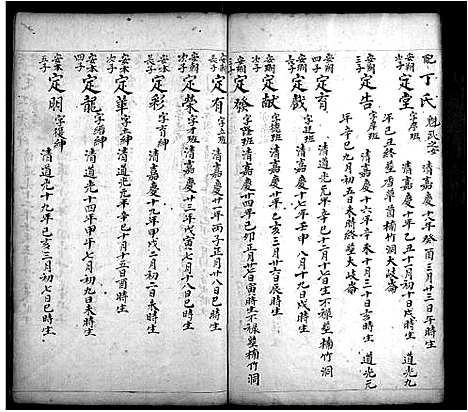 配丁氏 魁武女 清嘉慶十八年癸酉三月廿三日午時生
安朝次子 定堂 字序班 清嘉慶十年乙丑十一月初十日戌時生 道光九年己丑終塟眉翠菌楠竹洞大岐崙
安朝三子 定告 字序班 清嘉慶十六年辛未十月三十日亥時生 道光元年辛巳九月初五日未時終塟大岐崙
安朝四子 定育 清道光元年辛巳十二月十七日生不祿塟楠竹洞
安朝長子 定戲 字廷班 清嘉慶十七年壬申八月十九日戌時生
安朝次子 定献 字德班 清嘉慶廿年乙亥三月廿六日辰時生
安朝三子 定發 字隆班 清嘉慶廿四年己卯正月廿七日寅時生不祿塟楠竹洞
安朝長子 定有 字玉班 清嘉慶廿一年丙子正月廿八日巳時生
安朝次子 定榮 字才班 清嘉慶廿三年戊寅七月十八日巳時生
安本長子 定彩 字育紳 清嘉慶十九年甲戌二月初二日未時生
安本次子 定華 字玉紳 清道光元年辛巳十月十五日酉時生
安本四子 定龍 字縉紳 清道光十四年甲午七月初九日未時生
安本五子 定明 字從紳 清道光十九年己亥三月初七日巳時生